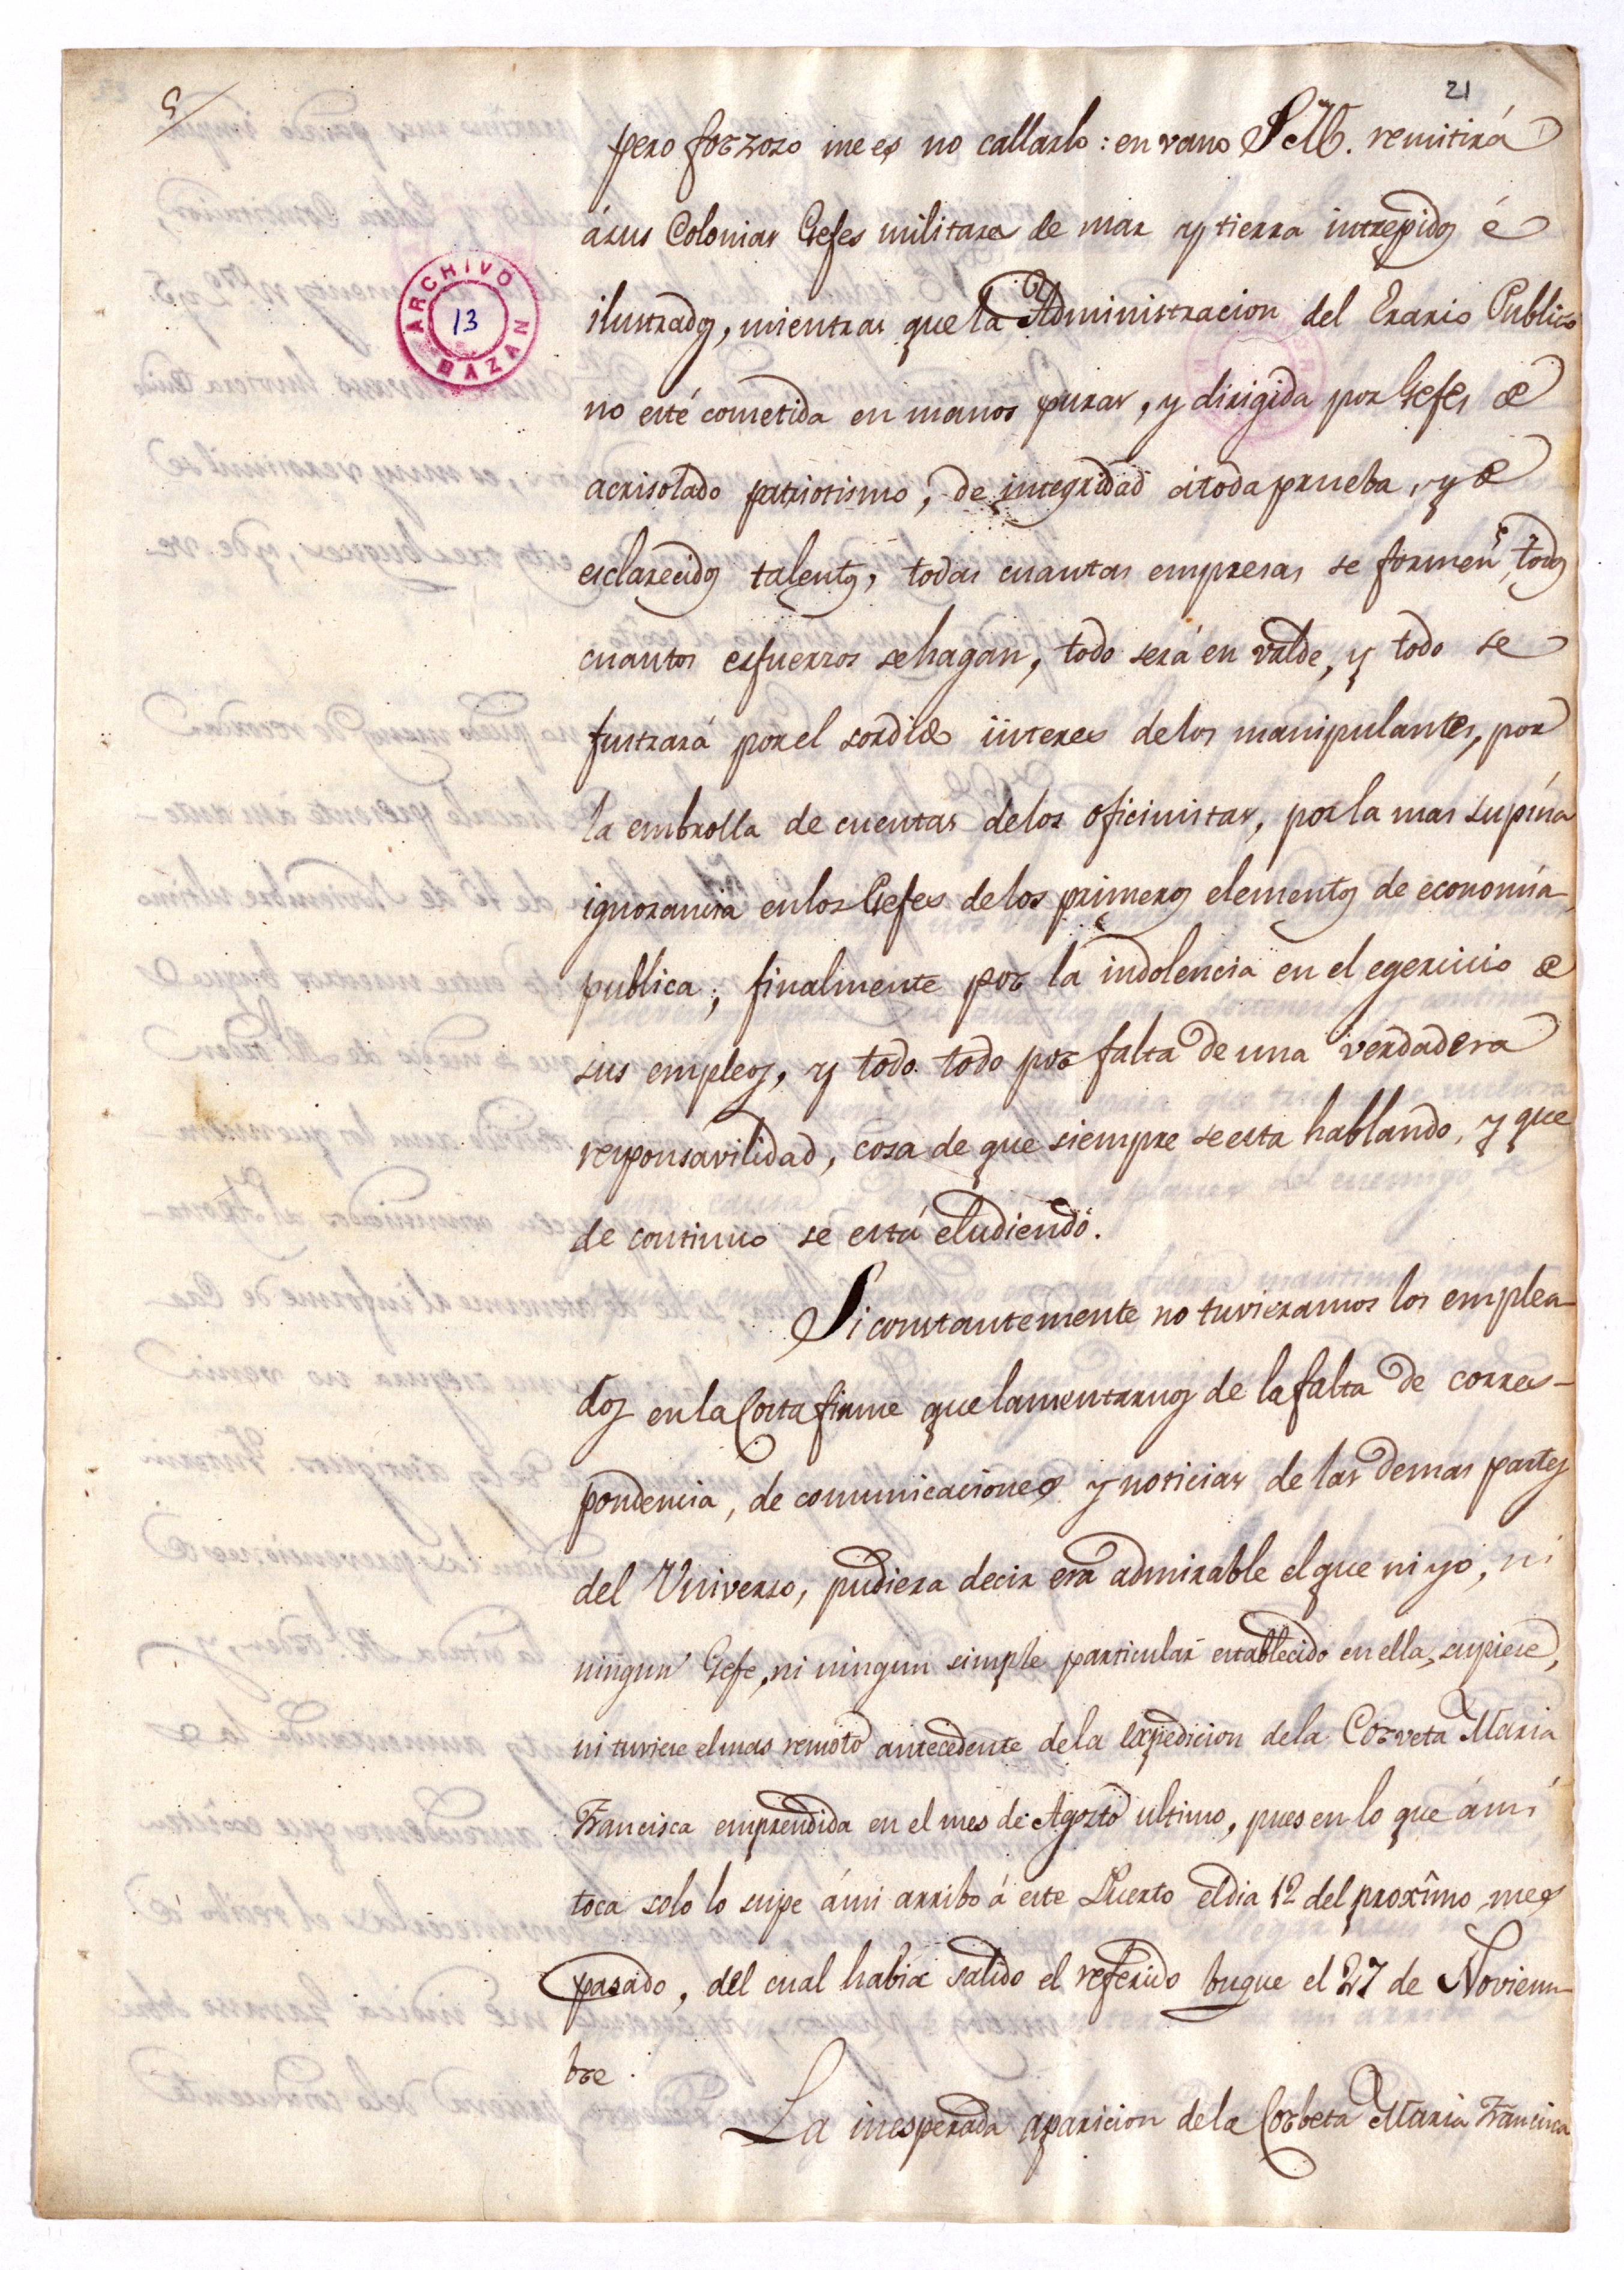 21
5
pero forzozo me es no callarlo: en vano S.M. remitirá
ásus Colonias Gefes militares de mar y tierra intrepidos é
ilustrados, mientras que la Administracion del Erario Publico
no esté cometida en manos puras, y dirigida por Gefes de
acrisolado patriotismo, de integridad átoda prueba, y de
esclarecidos talentos, todas cuantas empresas se formen, todos
cuantos esfuerzos sehagan, todo será en valde, y todo se
fustrará porel sordido interes delos manipulantes, por
la embrolla de cuentas delos oficinistas, porla mas supina
ignorancia enlos Gefes delos primeros elementos de economia
publica; finalmente por la indolencia en el egercicio de
sus empleos, y todo todo por falta de una verdadera
responsavilidad, cosa de que siempre seesta hablando, y que
de continuo se está eludiendo.
Si constantemente no tuvieramos los emplea-
dos enla Costafirme quelamentarnos de lafalta de corres-
pondencia, de comunicaciones y noticias de las demas partes
del Universo, pudiera decir era admirable elque ni yo, ni
ningun Gefe, ni ningun simple particular establecido en ella, supiese,
ni tuviese elmas remoto antecedente dela Expedicion dela Corveta Maria
Francisca emprendida en el mes de Agosto ultimo, pues en lo que ámi
toca solo lo supe ámi arribo á este Puerto eldia 12 del proxîmo mes
pasado, del cual habia salido el referido buque el 27 de Noviem-
bre.
La inesperada aparicion dela Corbeta Maria Francisca
ARCHIVO BAZAN
13